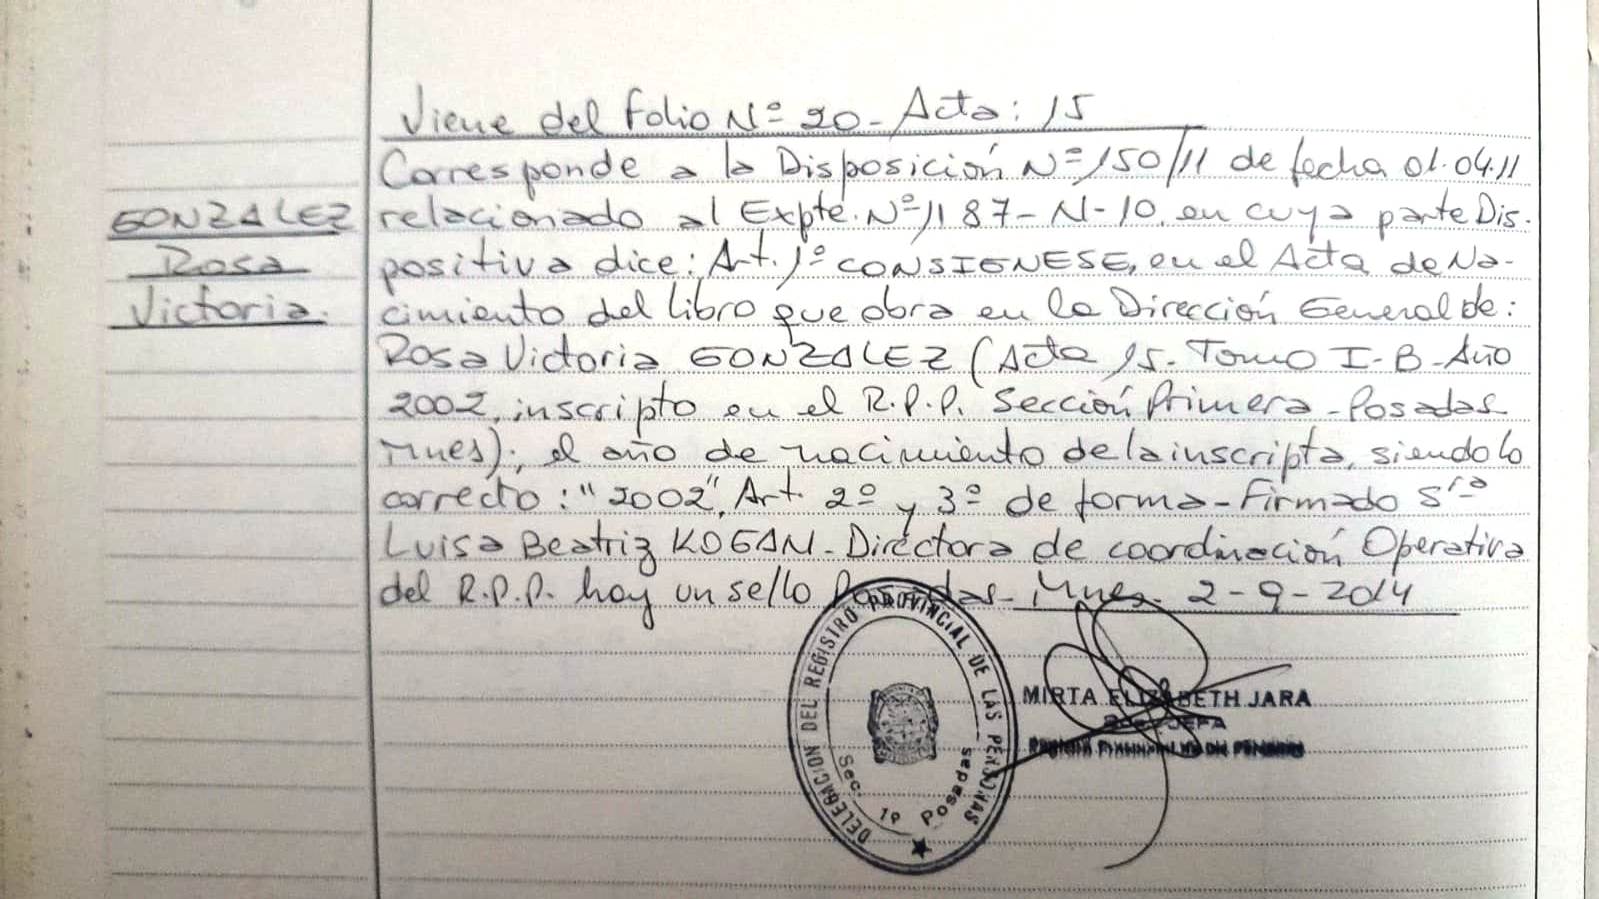 Viene del folio Nº 20 - Acta: 15
Corresponde a la Disposición Nº 150/11 de fecha 01.04.11
GONZALEZ
Rosa
Victoria.
relacionado al Expte. Nº 1187-N-10, en cuya parte Dis-
positiva dice: Art. 1º CONSIGNESE, en el Acta de Na-
cimiento del libro que obra en la Dirección General de:
Rosa Victoria GONZALEZ (Acta 15- Tomo I-B-Año
2002, inscripto en el R.P.P. Sección Primera - Posadas
Mnes); el año de nacimiento de la inscripta, siendo lo
correcto: "2002", Art. 2º y 3º de forma - Firmado Sra
Luisa Beatriz KOGAN - Directora de coordinación Operativa
del R.P.P. hay un sello Posadas - Mnes. 2-9-2014
DELEGACION DEL REGISTRO PROVINCIAL DE LAS PERSONAS
Sec. 1ª Posadas
MIRTA ELIZABETH JARA